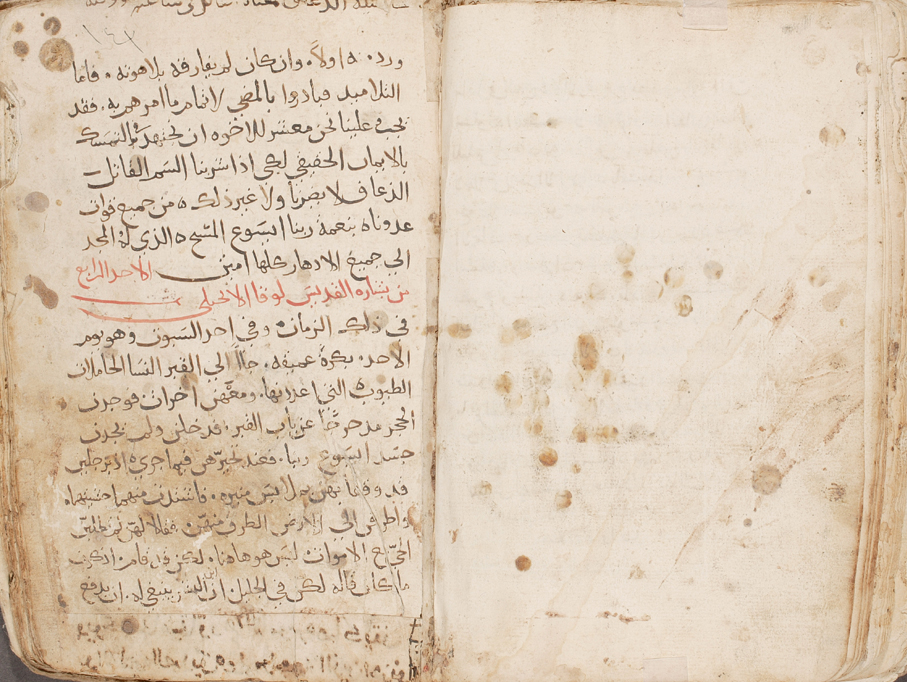 ورده اولاً. وان كان لم يفارقه بلاهوته. فاما
التلاميد فبادروا بالمضي لاتمام ما امرهم به. فقد
يجب علينا نحن معشر الاخوه ان نجتهد بالتمسك
بالايمان الحقيقي لكي اذا شربنا السم القاتل
الذعاف لا يضرنا ولا غير ذلك من جميع قوات
عدونا بنعمة ربنا ايسوع المسيح الذي له المجد
الي جميع الادهار كلها امين الاحد الرابع
من بشاره القديس لوقا الانجيلي
في ذلك الزمان وفي احد السبوت وهو يوم
الاحد. بكرة عميقه. جاا الي القبر النسا الحاملات
الطيوب التي اعددنها. ومعهن اخرات فوجدن
الحجر مدحرجًا عن باب القبر. فدخلن ولم يجدن
جسد ايسوع ربنا. فعند تحيرهن فيما جري اذ برجلين
قد وقفا بهن بملابس منيره.
واطرقن الي الارض الطرف منهن. فقالا لهن لم تطلبن
الحي مع الاموات ليس هو هاهنا. لكن قد قام. اذكرن
ما كان قاله لكن في الجليل. ان ابن البشر ينبغي له. ان يدفع